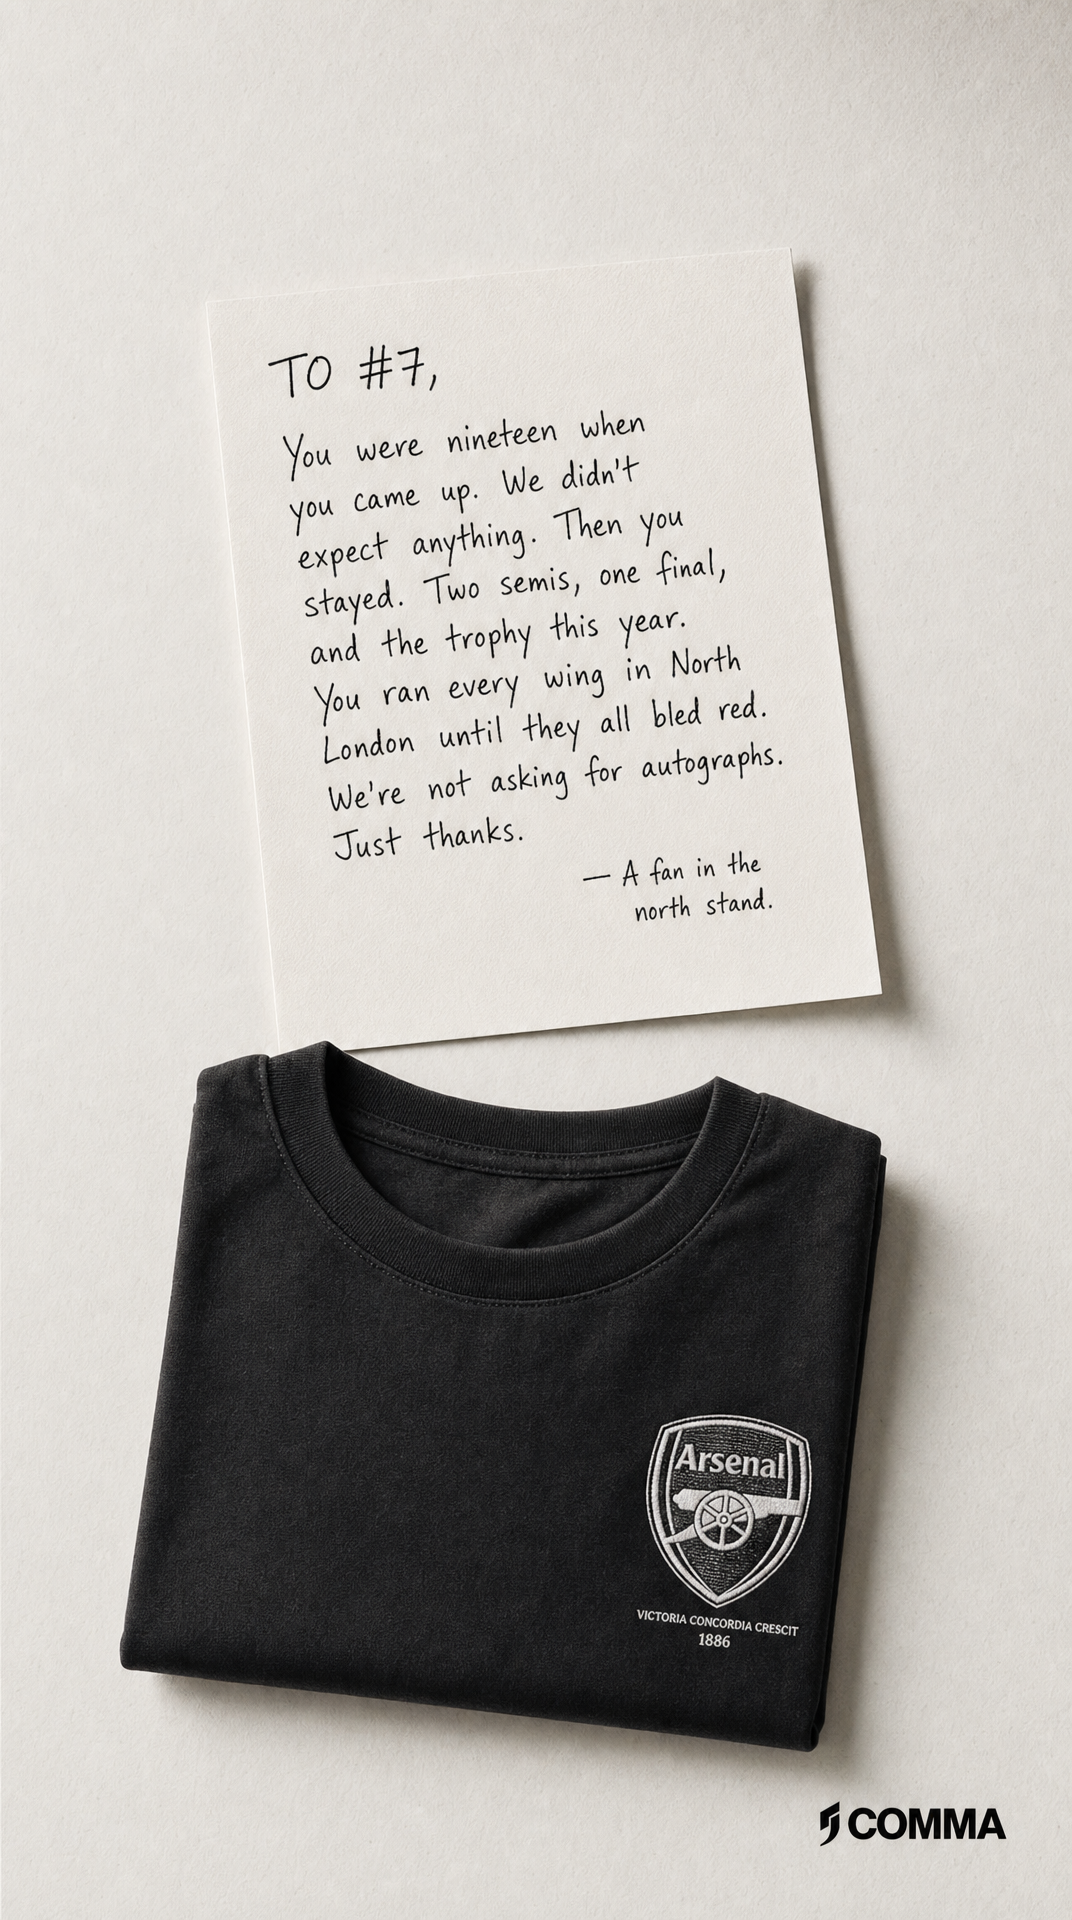 TO #7,
You were nineteen when
you came up. We didn't
expect anything. Then you
stayed. Two semis, one final,
and the trophy this year.
You ran every wing in North
London until they all bled red.
We're not asking for autographs.
Just thanks.
— A fan in the
north stand.
Arsenal
VICTORIA CONCORDIA CRESCIT
1886
COMMA